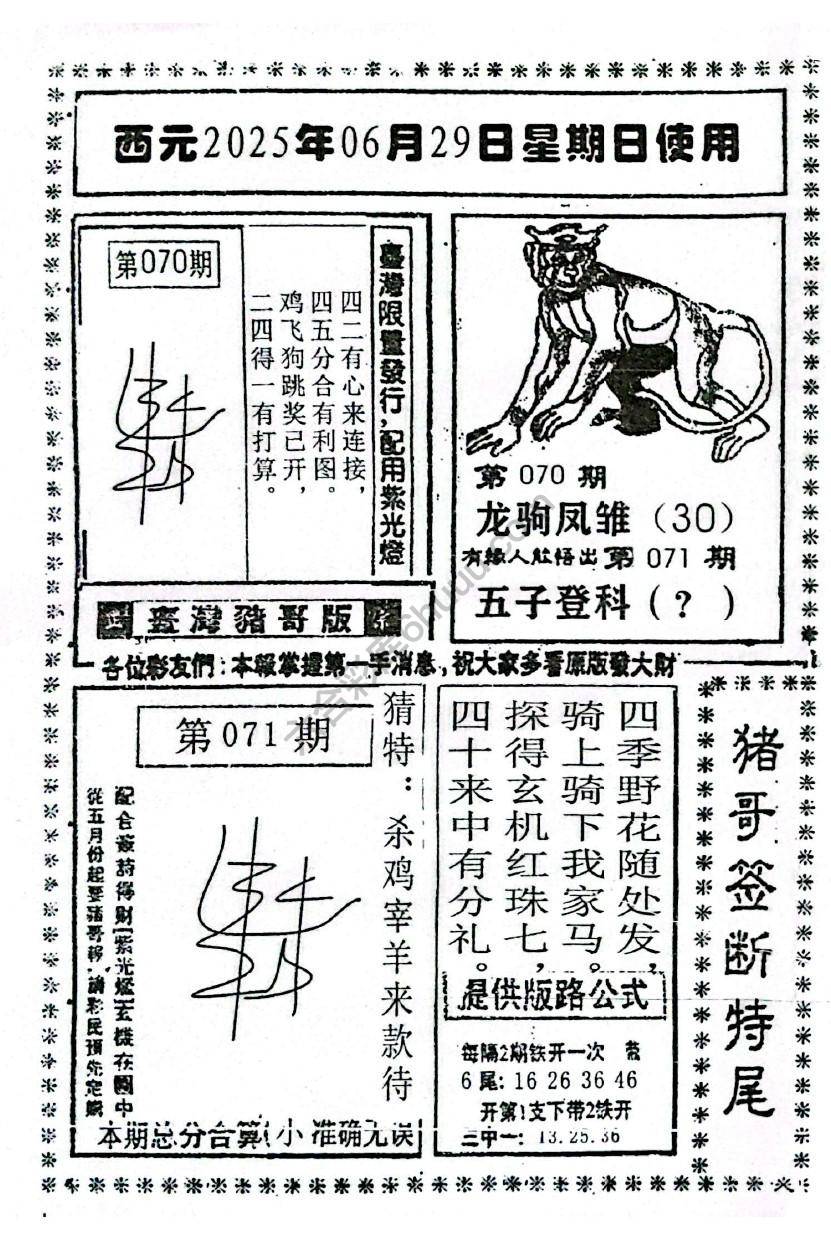 西元2025年06月29日星期日使用
第070期
臺灣限量發行,配用紫光燈
四二有心来连接,
四五分合有利图。
鸡飞狗跳奖已开,
二四得一有打算。
臺灣豬哥版
第 070 期
龙驹凤雏（30）
有緣人能悟出第 071 期
五子登科（？）
各位彩友們:本報掌握第一手消息,祝大家多看原版發大財
第071期
猜特：杀鸡宰羊来款待
配合該詩得財[紫光燈]玄機在圖中
從五月份起要豬哥報,請彩民預先定購
本期总分合算(小 准确无误
四季野花随处发,
骑上骑下我家马。
探得玄机红珠七,
四十来中有分礼。
提供版路公式
每隔2期铁开一次
6尾: 16 26 36 46
开第1支下带2铁开
三中一: 13.25.36
猪哥签断特尾
六合彩库ohuuu.com